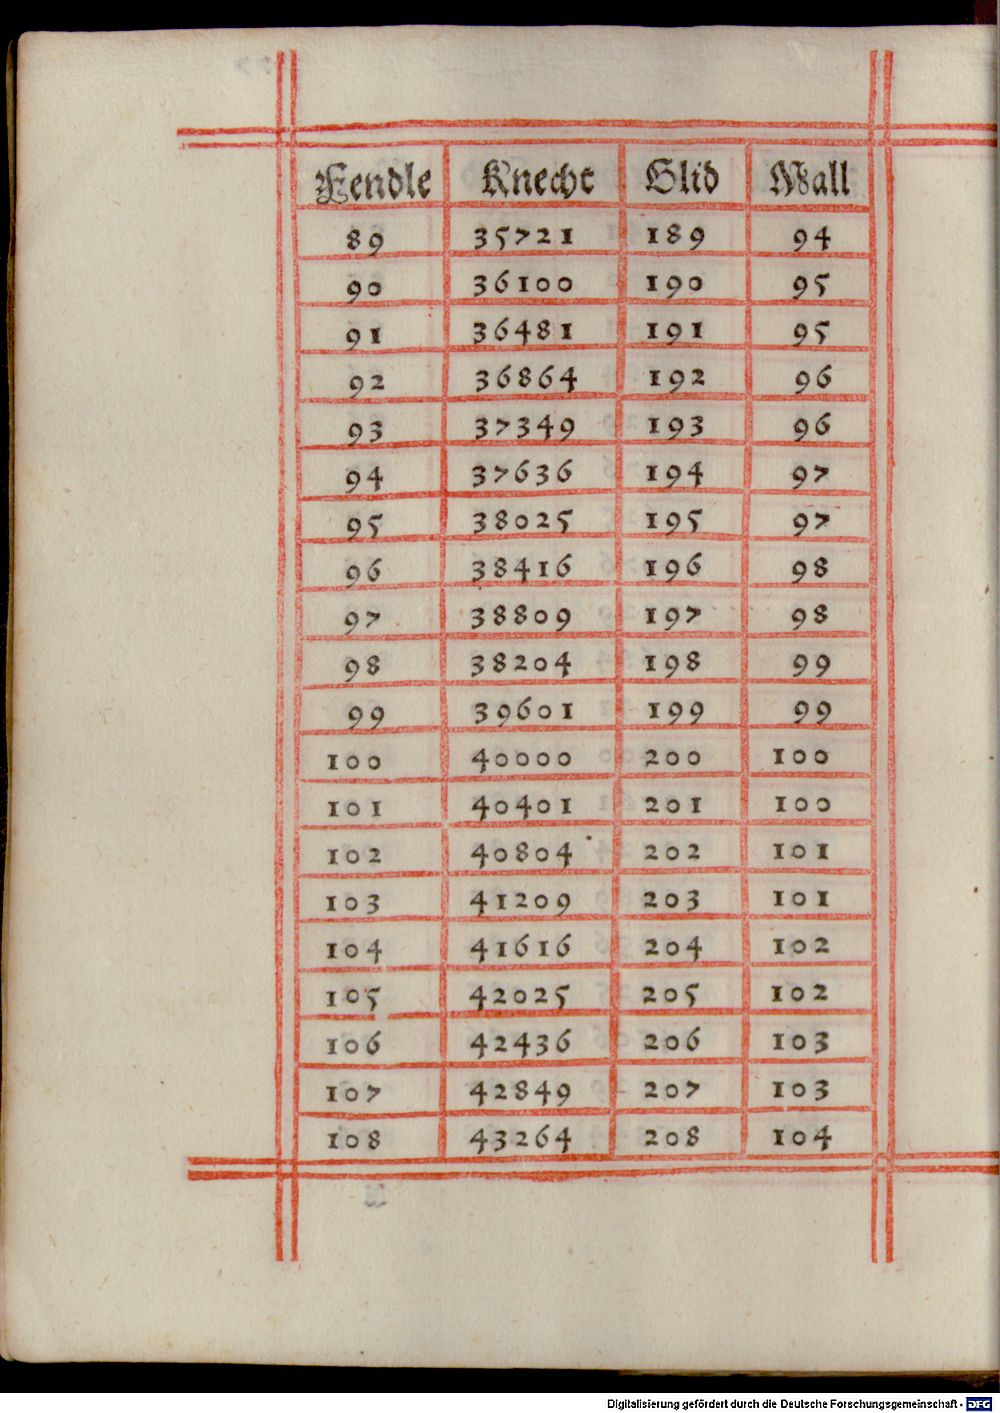 Fendle Knecht Glid Wall
89 35721 189 94
90 36100 190 95
91 36481 191 95
92 36864 192 96
93 37349 193 96
94 37636 194 97
95 38025 195 97
96 38416 196 98
97 38809 197 98
98 38204 198 99
99 39601 199 99
100 40000 200 100
101 40401 201 100
102 40804 202 101
103 41209 203 101
104 41616 204 102
105 42025 205 102
106 42436 206 103
107 42849 207 103
108 43264 208 104
Digitalisierung gefördert durch die Deutsche Forschungsgemeinschaft - DFG